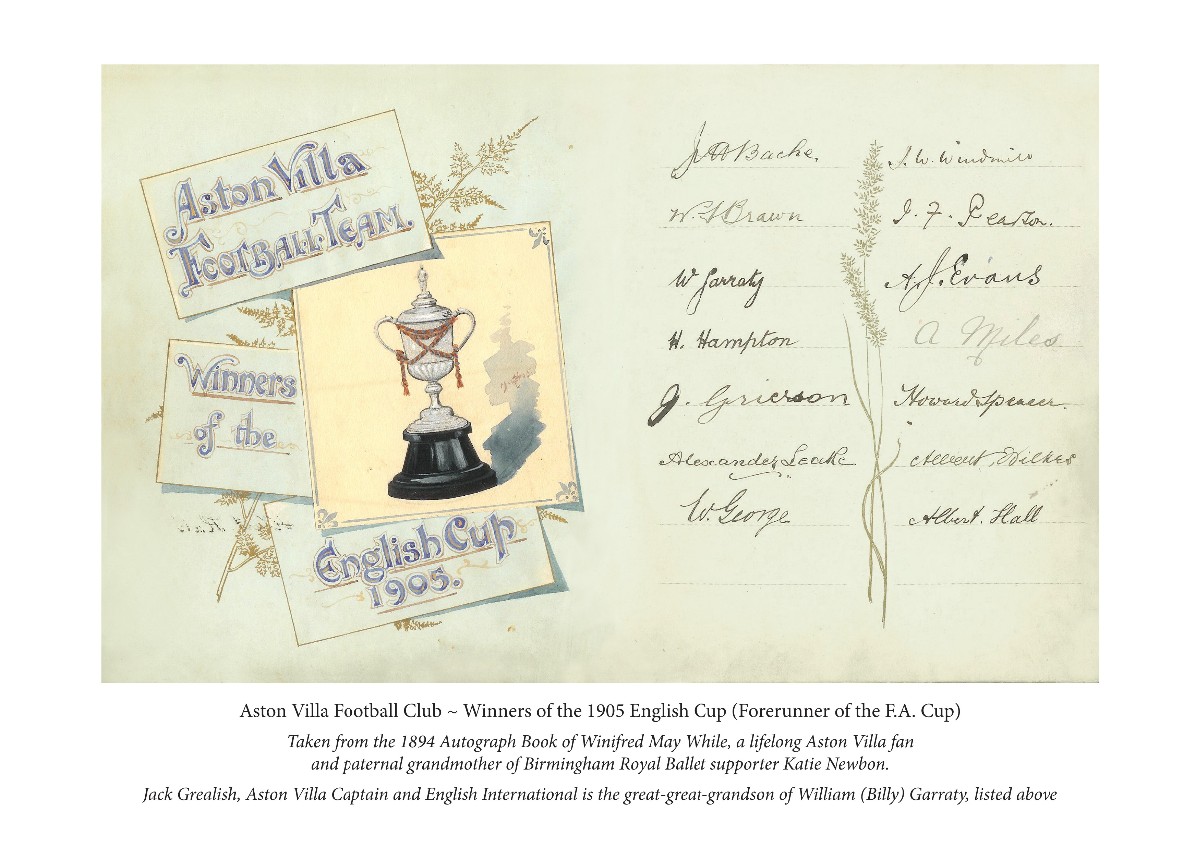 Aston Villa
Football Team.
Winners
of the
English Cup
1905.
J W Bache.
W. F Brawn
W Garraty
H. Hampton
J. Grierson
Alexander Leake
W. George
J. W. Windmill
J. F. Pearson.
A. J. Evans
A Miles
Howard Spencer.
Albert Wilkes
Albert. Hall
Aston Villa Football Club ~ Winners of the 1905 English Cup (Forerunner of the F.A. Cup)
Taken from the 1894 Autograph Book of Winifred May While, a lifelong Aston Villa fan
and paternal grandmother of Birmingham Royal Ballet supporter Katie Newbon.
Jack Grealish, Aston Villa Captain and English International is the great-great-grandson of William (Billy) Garraty, listed above